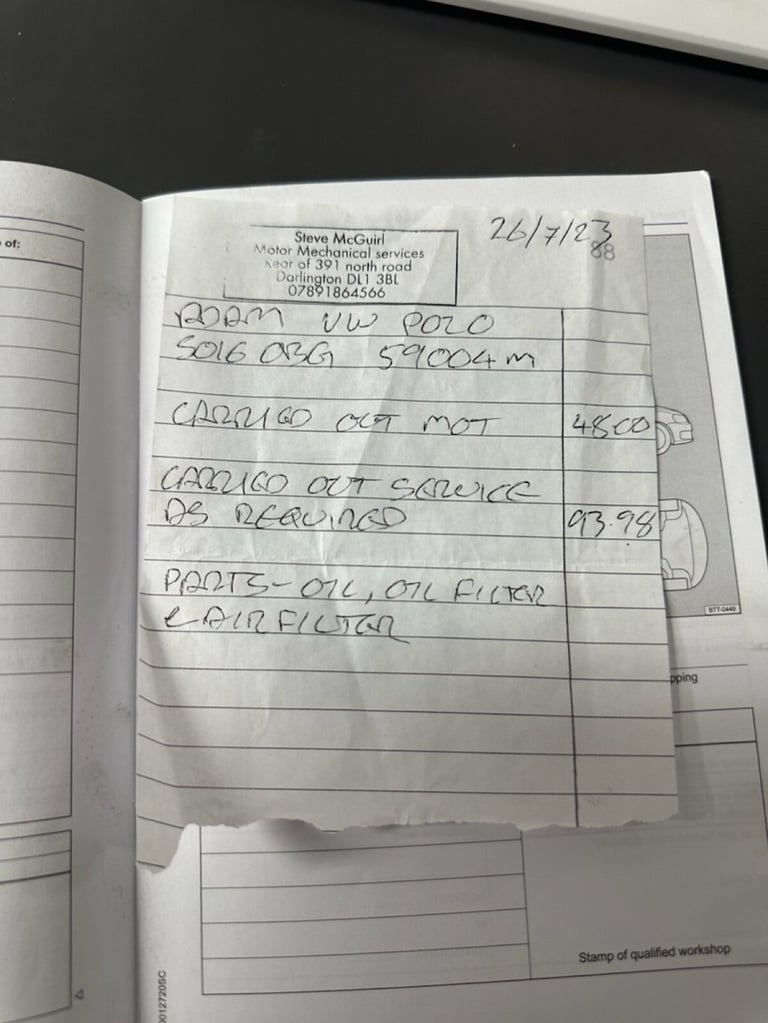 of:
Steve McGuirl
Motor Mechanical services
Rear of 391 north road
Darlington DL1 3BL
07891864566
26/7/23
88
ADAM VW POLO
SO16 OBG 59004m
CARRIED OUT MOT 48.00
CARRIED OUT SERVICE
AS REQUIRED 93.98
PARTS - OIL, OIL FILTER
& AIR FILTER
BTT-0449
pping
Stamp of qualified workshop
0012720SC